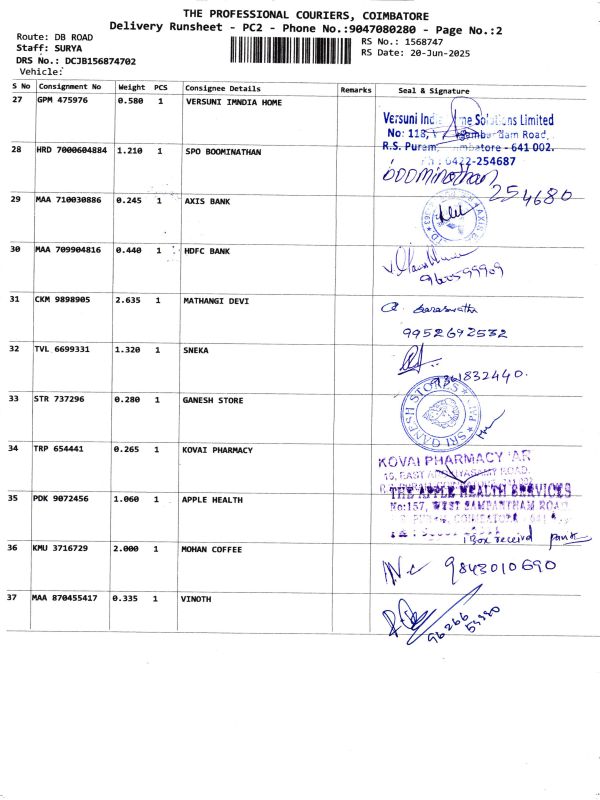 THE PROFESSIONAL COURIERS, COIMBATORE
Delivery Runsheet - PC2 - Phone No.:9047080280 - Page No.:2
Route: DB ROAD
Staff: SURYA
DRS No.: DCJB156874702
Vehicle:
RS No.: 1568747
RS Date: 20-Jun-2025
S No Consignment No Weight PCS Consignee Details Remarks Seal & Signature
27 GPM 475976 0.580 1 VERSUNI IMNDIA HOME
Versuni India Home Solutions Limited
No: 118, Road,
R.S. Puram, Coimbatore - 641 002.
Ph : 0422-254687
28 HRD 7000604884 1.210 1 SPO BOOMINATHAN
boominathan
254680
29 MAA 710030886 0.245 1 AXIS BANK
30 MAA 709904816 0.440 1 HDFC BANK
31 CKM 9898905 2.635 1 MATHANGI DEVI
saraswathi
9952692532
32 TVL 6699331 1.320 1 SNEKA
9361832440.
33 STR 737296 0.280 1 GANESH STORE
SRI GANESH STORES
34 TRP 654441 0.265 1 KOVAI PHARMACY
KOVAI PHARMACY
35 PDK 9072456 1.060 1 APPLE HEALTH
THE APPLE HEALTH SERVICES
No:157, WEST SAMBANTHAM ROAD
1 Box received
36 KMU 3716729 2.000 1 MOHAN COFFEE
9843010690
37 MAA 870455417 0.335 1 VINOTH
96266